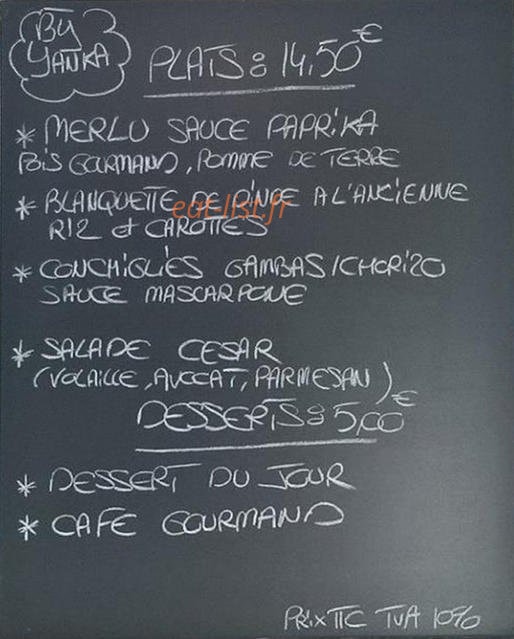 By
YANKA
PLATS : 14,50€
* MERLU SAUCE PAPRIKA
POIS GOURMAND, POMME DE TERRE
* BLANQUETTE DE DINDE A L'ANCIENNE
eat-list.fr
RIZ et CAROTTES
* CONCHIGLIES GAMBAS/CHORIZO
SAUCE MASCARPONE
* SALADE CESAR
(VOLAILLE, AVOCAT, PARMESAN)
DESSERTS : 5,00€
* DESSERT DU JOUR
* CAFE GOURMAND
PRIX TTC TVA 10%